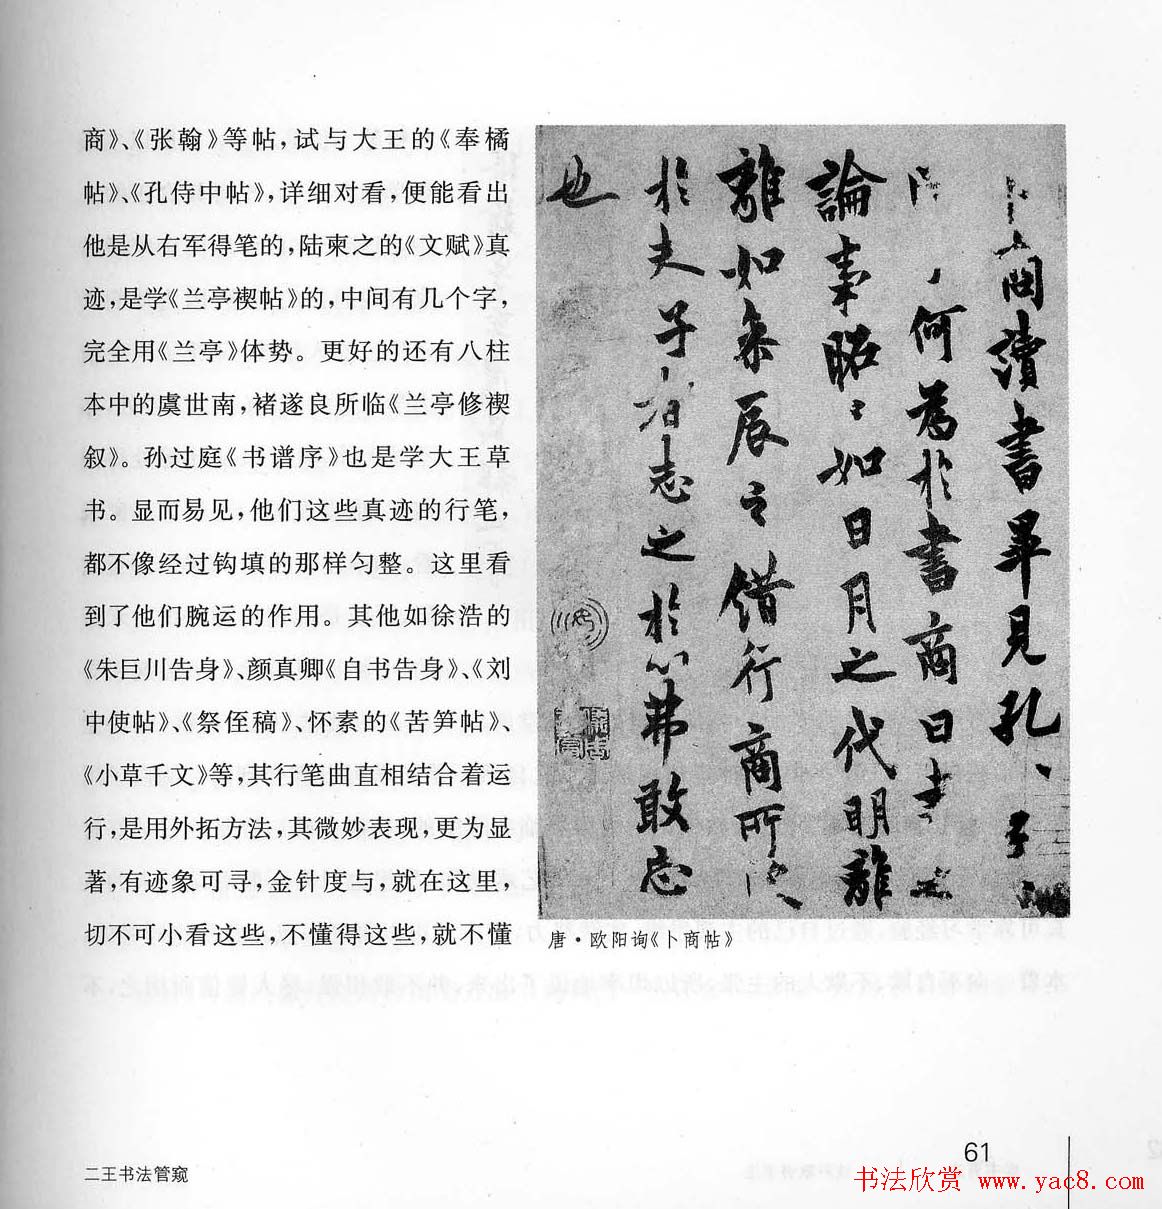 商》、《张翰》等帖，试与大王的《奉橘
帖》、《孔侍中帖》，详细对看，便能看出
他是从右军得笔的，陆柬之的《文赋》真
迹，是学《兰亭禊帖》的，中间有几个字，
完全用《兰亭》体势。更好的还有八柱
本中的虞世南，褚遂良所临《兰亭修禊
叙》。孙过庭《书谱序》也是学大王草
书。显而易见，他们这些真迹的行笔，
都不像经过钩填的那样匀整。这里看
到了他们腕运的作用。其他如徐浩的
《朱巨川告身》、颜真卿《自书告身》、《刘
中使帖》、《祭侄稿》、怀素的《苦笋帖》、
《小草千文》等，其行笔曲直相结合着运
行，是用外拓方法，其微妙表现，更为显
著，有迹象可寻，金针度与，就在这里，
切不可小看这些，不懂得这些，就不懂
卜商讀書畢見孔
何為於書商曰書
論事昭〻如日月之代明離
離如参辰之错行商所
於夫子者志之於心弗敢忘
也
唐·欧阳询《卜商帖》
二王书法管窥
61
书法欣赏 www.yac8.com